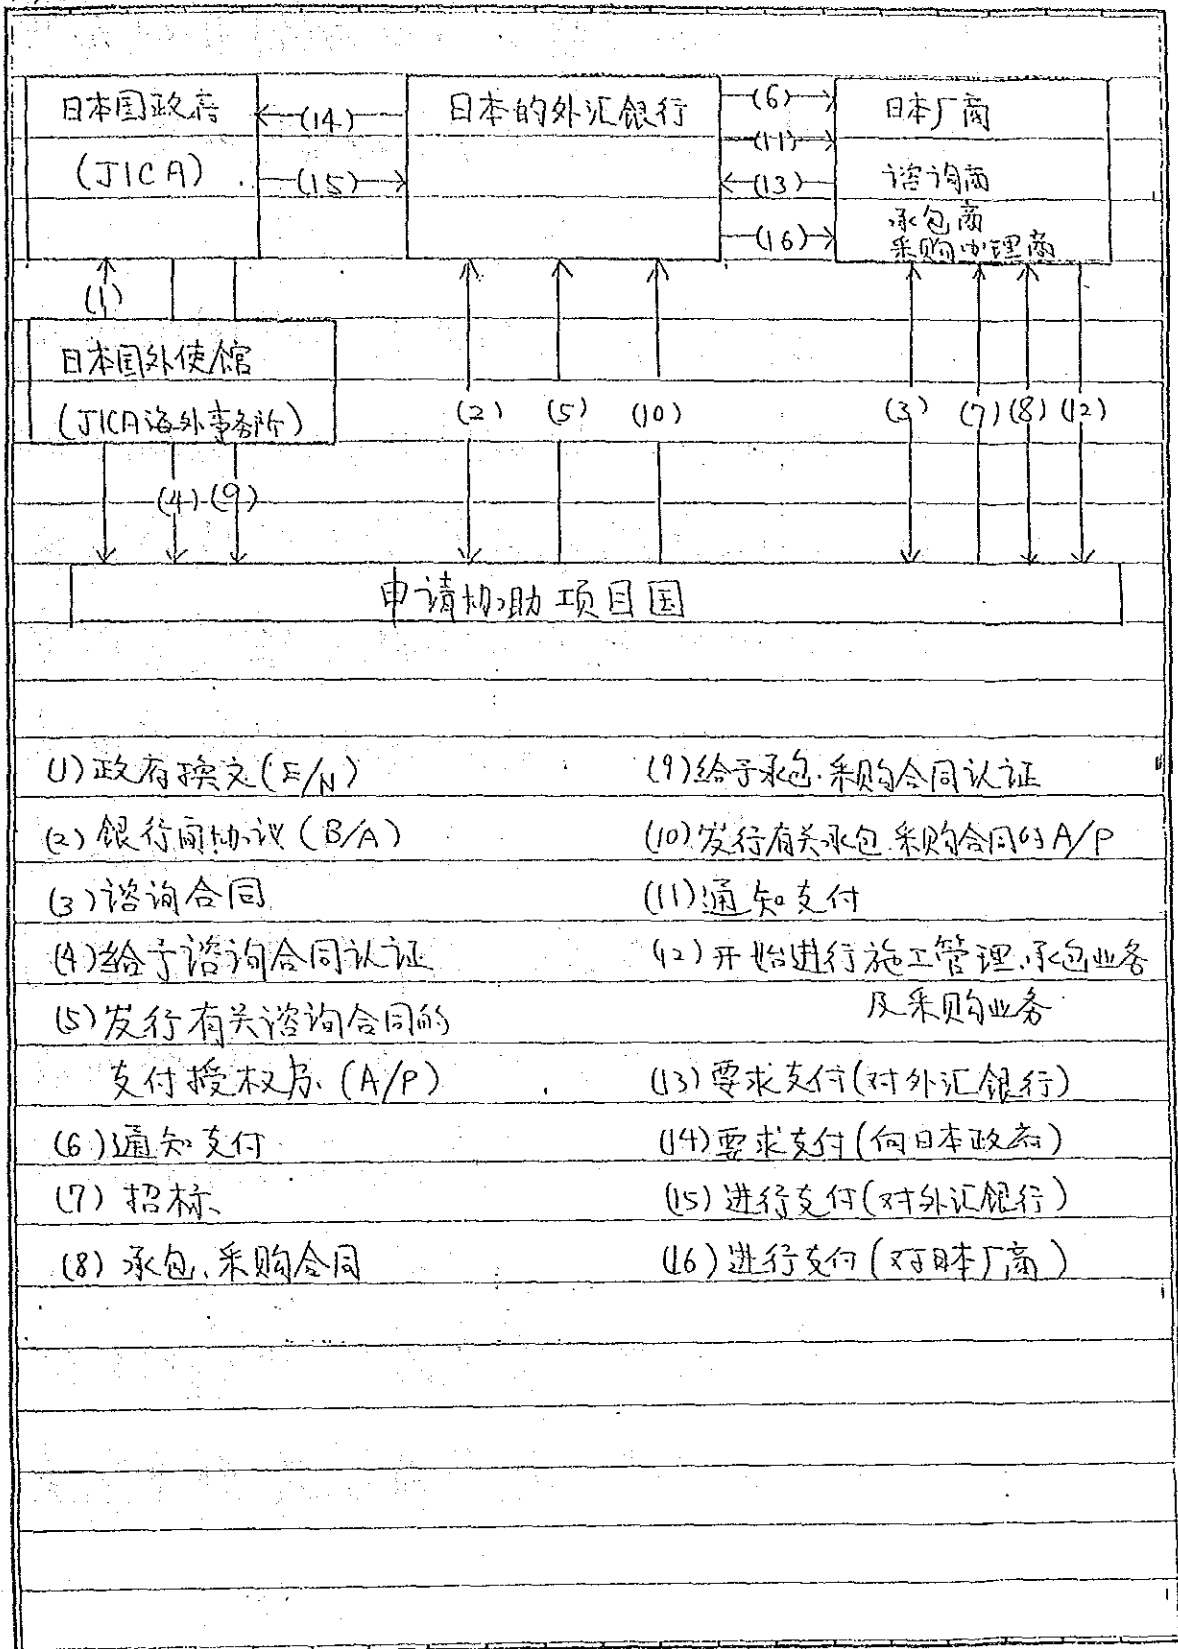 日本国政府
(JICA)
(14)
(15)
日本的外汇银行
(6)
(11)
(13)
(16)
日本厂商
谘询商
承包商
采购办理商
(1)
日本国外使馆
(JICA海外事务所)
(2) (5) (10)
(3) (7) (8) (12)
(4) (9)
申请协助项目国
(1) 政府换文(E/N)
(2) 银行间协议 (B/A)
(3) 谘询合同
(4) 给予谘询合同认证
(5) 发行有关谘询合同的
支付授权书 (A/P)
(6) 通知支付
(7) 招标
(8) 承包、采购合同
(9) 给予承包、采购合同认证
(10) 发行有关承包、采购合同的A/P
(11) 通知支付
(12) 开始进行施工管理、承包业务
及采购业务
(13) 要求支付(对外汇银行)
(14) 要求支付(向日本政府)
(15) 进行支付(对外汇银行)
(16) 进行支付(对日本厂商)